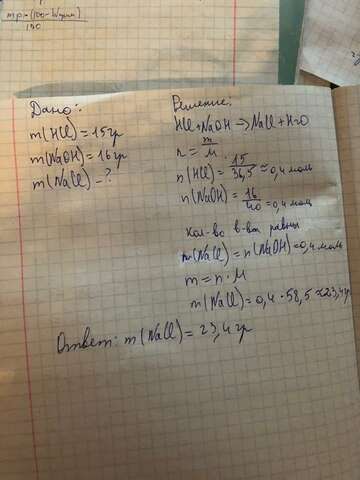 mр-(100-Wприм)
100
Дано:
m(HCl)=15гр
m(NaOH)=16гр
m(NaCl)-?
Решение:
HCl+NaOH→NaCl+H2O
n=m/M
n(HCl)=15/36,5≈0,4 моль
n(NaOH)=16/40=0,4 моль
Кол-во в-ва равны
m(NaCl)=n(NaOH)=0,4 моль
m=n·M
m(NaCl)=0,4·58,5≈23,4гр
Ответ: m(NaCl)=23,4 гр